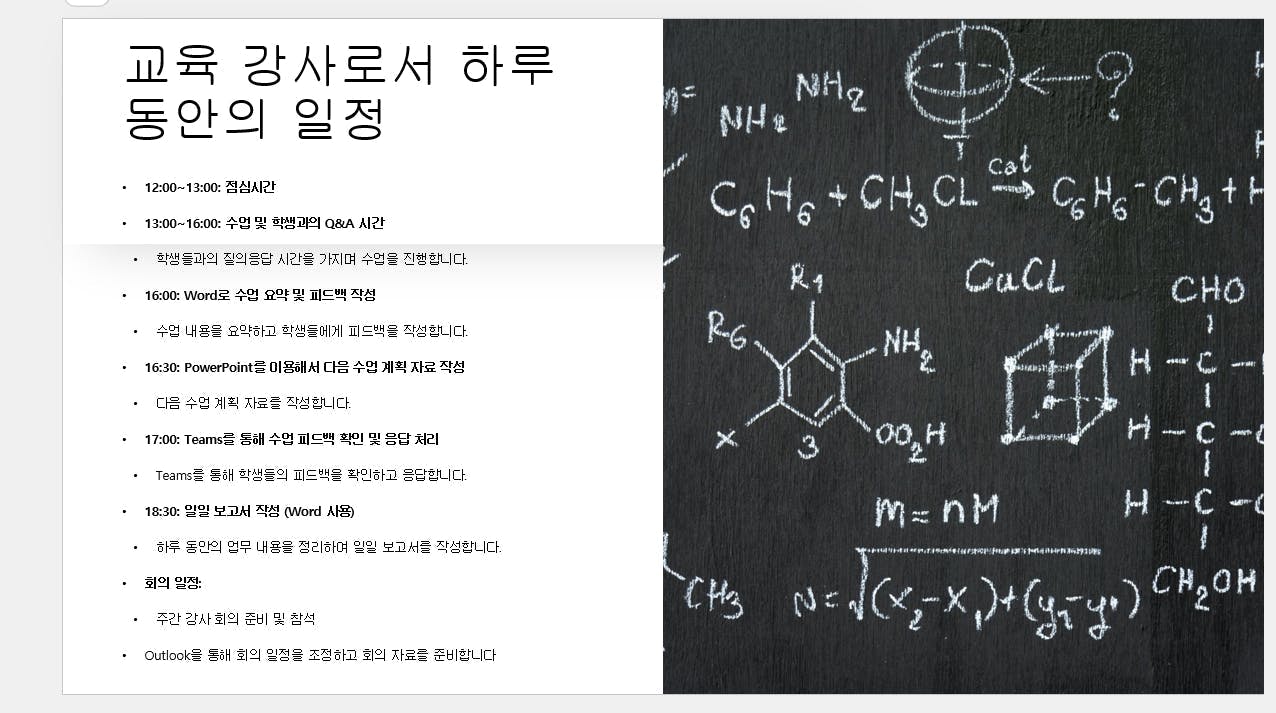 교육 강사로서 하루
동안의 일정
• 12:00~13:00: 점심시간
• 13:00~16:00: 수업 및 학생과의 Q&A 시간
• 학생들과의 질의응답 시간을 가지며 수업을 진행합니다.
• 16:00: Word로 수업 요약 및 피드백 작성
• 수업 내용을 요약하고 학생들에게 피드백을 작성합니다.
• 16:30: PowerPoint를 이용해서 다음 수업 계획 자료 작성
• 다음 수업 계획 자료를 작성합니다.
• 17:00: Teams를 통해 수업 피드백 확인 및 응답 처리
• Teams를 통해 학생들의 피드백을 확인하고 응답합니다.
• 18:30: 일일 보고서 작성 (Word 사용)
• 하루 동안의 업무 내용을 정리하여 일일 보고서를 작성합니다.
• 회의 일정:
• 주간 강사 회의 준비 및 참석
• Outlook을 통해 회의 일정을 조정하고 회의 자료를 준비합니다
NH₂ NH₂ ?
C₆H₆ + CH₃CL cat → C₆H₆-CH₃ + H
R₁ CuCL CHO
R₆ NH₂ H-C-
X 3 OO₂H H-C-
m = nM H-C-
CH₃ N = √(x₂-x₁)+(y₂-y') CH₂OH